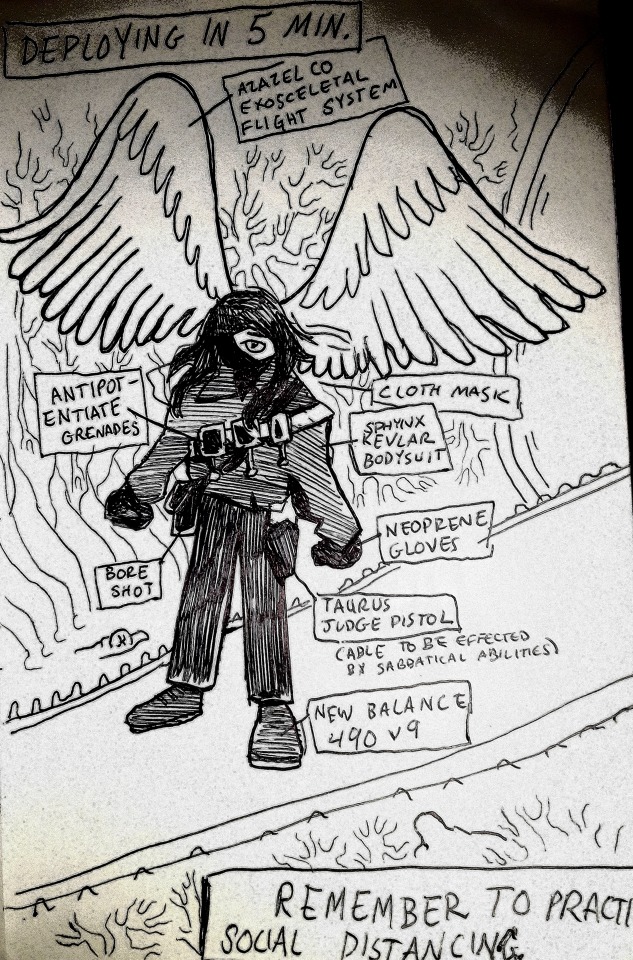 DEPLOYING IN 5 MIN.
AZAZEL CO
EXOSCELETAL
FLIGHT SYSTEM
ANTIPOT-
ENTIATE
GRENADES
CLOTH MASK
SPHYNX
KEVLAR
BODYSUIT
NEOPRENE
GLOVES
BORE
SHOT
TAURUS
JUDGE PISTOL
(ABLE TO BE EFFECTED
BY SABBATICAL ABILITIES)
NEW BALANCE
490 V9
REMEMBER TO PRACTI
SOCIAL DISTANCING